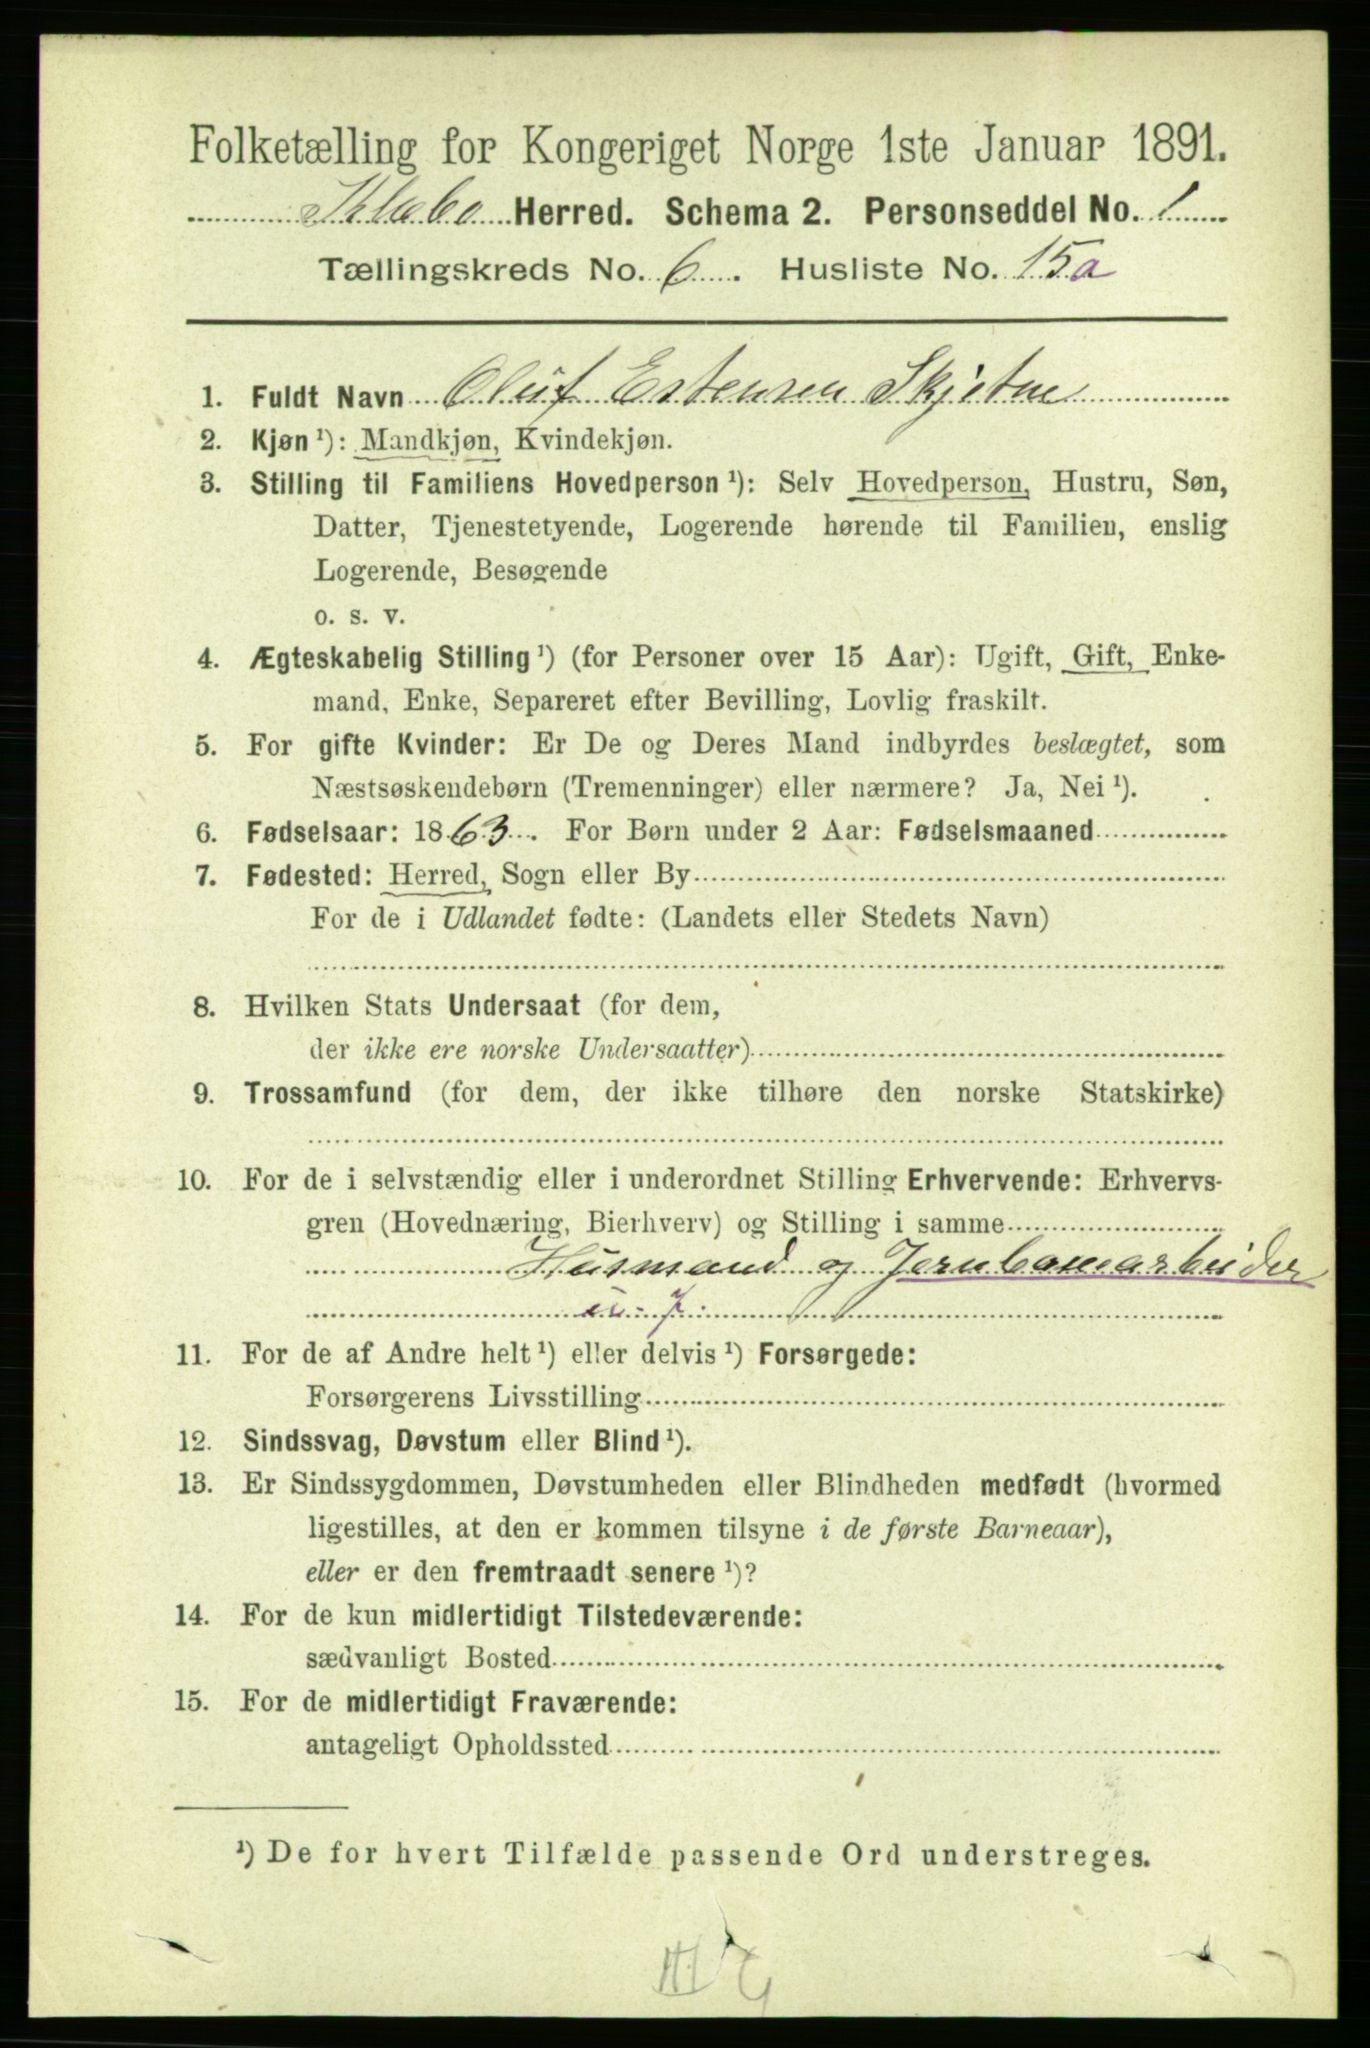 Folketælling for Kongeriget Norge 1ste Januar 1891.
Klæbo Herred. Schema 2. Personseddel No. 1
Tællingskreds No. 6. Husliste No. 15a
1. Fuldt Navn Oluf Estensen Skjetne
2. Kjøn ¹): Mandkjøn, Kvindekjøn.
3. Stilling til Familiens Hovedperson ¹): Selv Hovedperson, Hustru, Søn,
Datter, Tjenestetyende, Logerende hørende til Familien, enslig
Logerende, Besøgende
o. s. v.
4. Ægteskabelig Stilling ¹) (for Personer over 15 Aar): Ugift, Gift, Enke-
mand, Enke, Separeret efter Bevilling, Lovlig fraskilt.
5. For gifte Kvinder: Er De og Deres Mand indbyrdes beslægtet, som
Næstsøskendebørn (Tremenninger) eller nærmere? Ja, Nei ¹).
6. Fødselsaar: 1863. For Børn under 2 Aar: Fødselsmaaned
7. Fødested: Herred, Sogn eller By
For de i Udlandet fødte: (Landets eller Stedets Navn)
8. Hvilken Stats Undersaat (for dem,
der ikke ere norske Undersaatter)
9. Trossamfund (for dem, der ikke tilhøre den norske Statskirke)
10. For de i selvstændig eller i underordnet Stilling Erhvervende: Erhvervs-
gren (Hovednæring, Bierhverv) og Stilling i samme
Husmand og Jernbanearbeider
u. J.
11. For de af Andre helt ¹) eller delvis ¹) Forsørgede:
Forsørgerens Livsstilling
12. Sindssvag, Døvstum eller Blind ¹).
13. Er Sindssygdommen, Døvstumheden eller Blindheden medfødt (hvormed
ligestilles, at den er kommen tilsyne i de første Barneaar),
eller er den fremtraadt senere ¹)?
14. For de kun midlertidigt Tilstedeværende:
sædvanligt Bosted
15. For de midlertidigt Fraværende:
antageligt Opholdssted
¹) De for hvert Tilfælde passende Ord understreges.